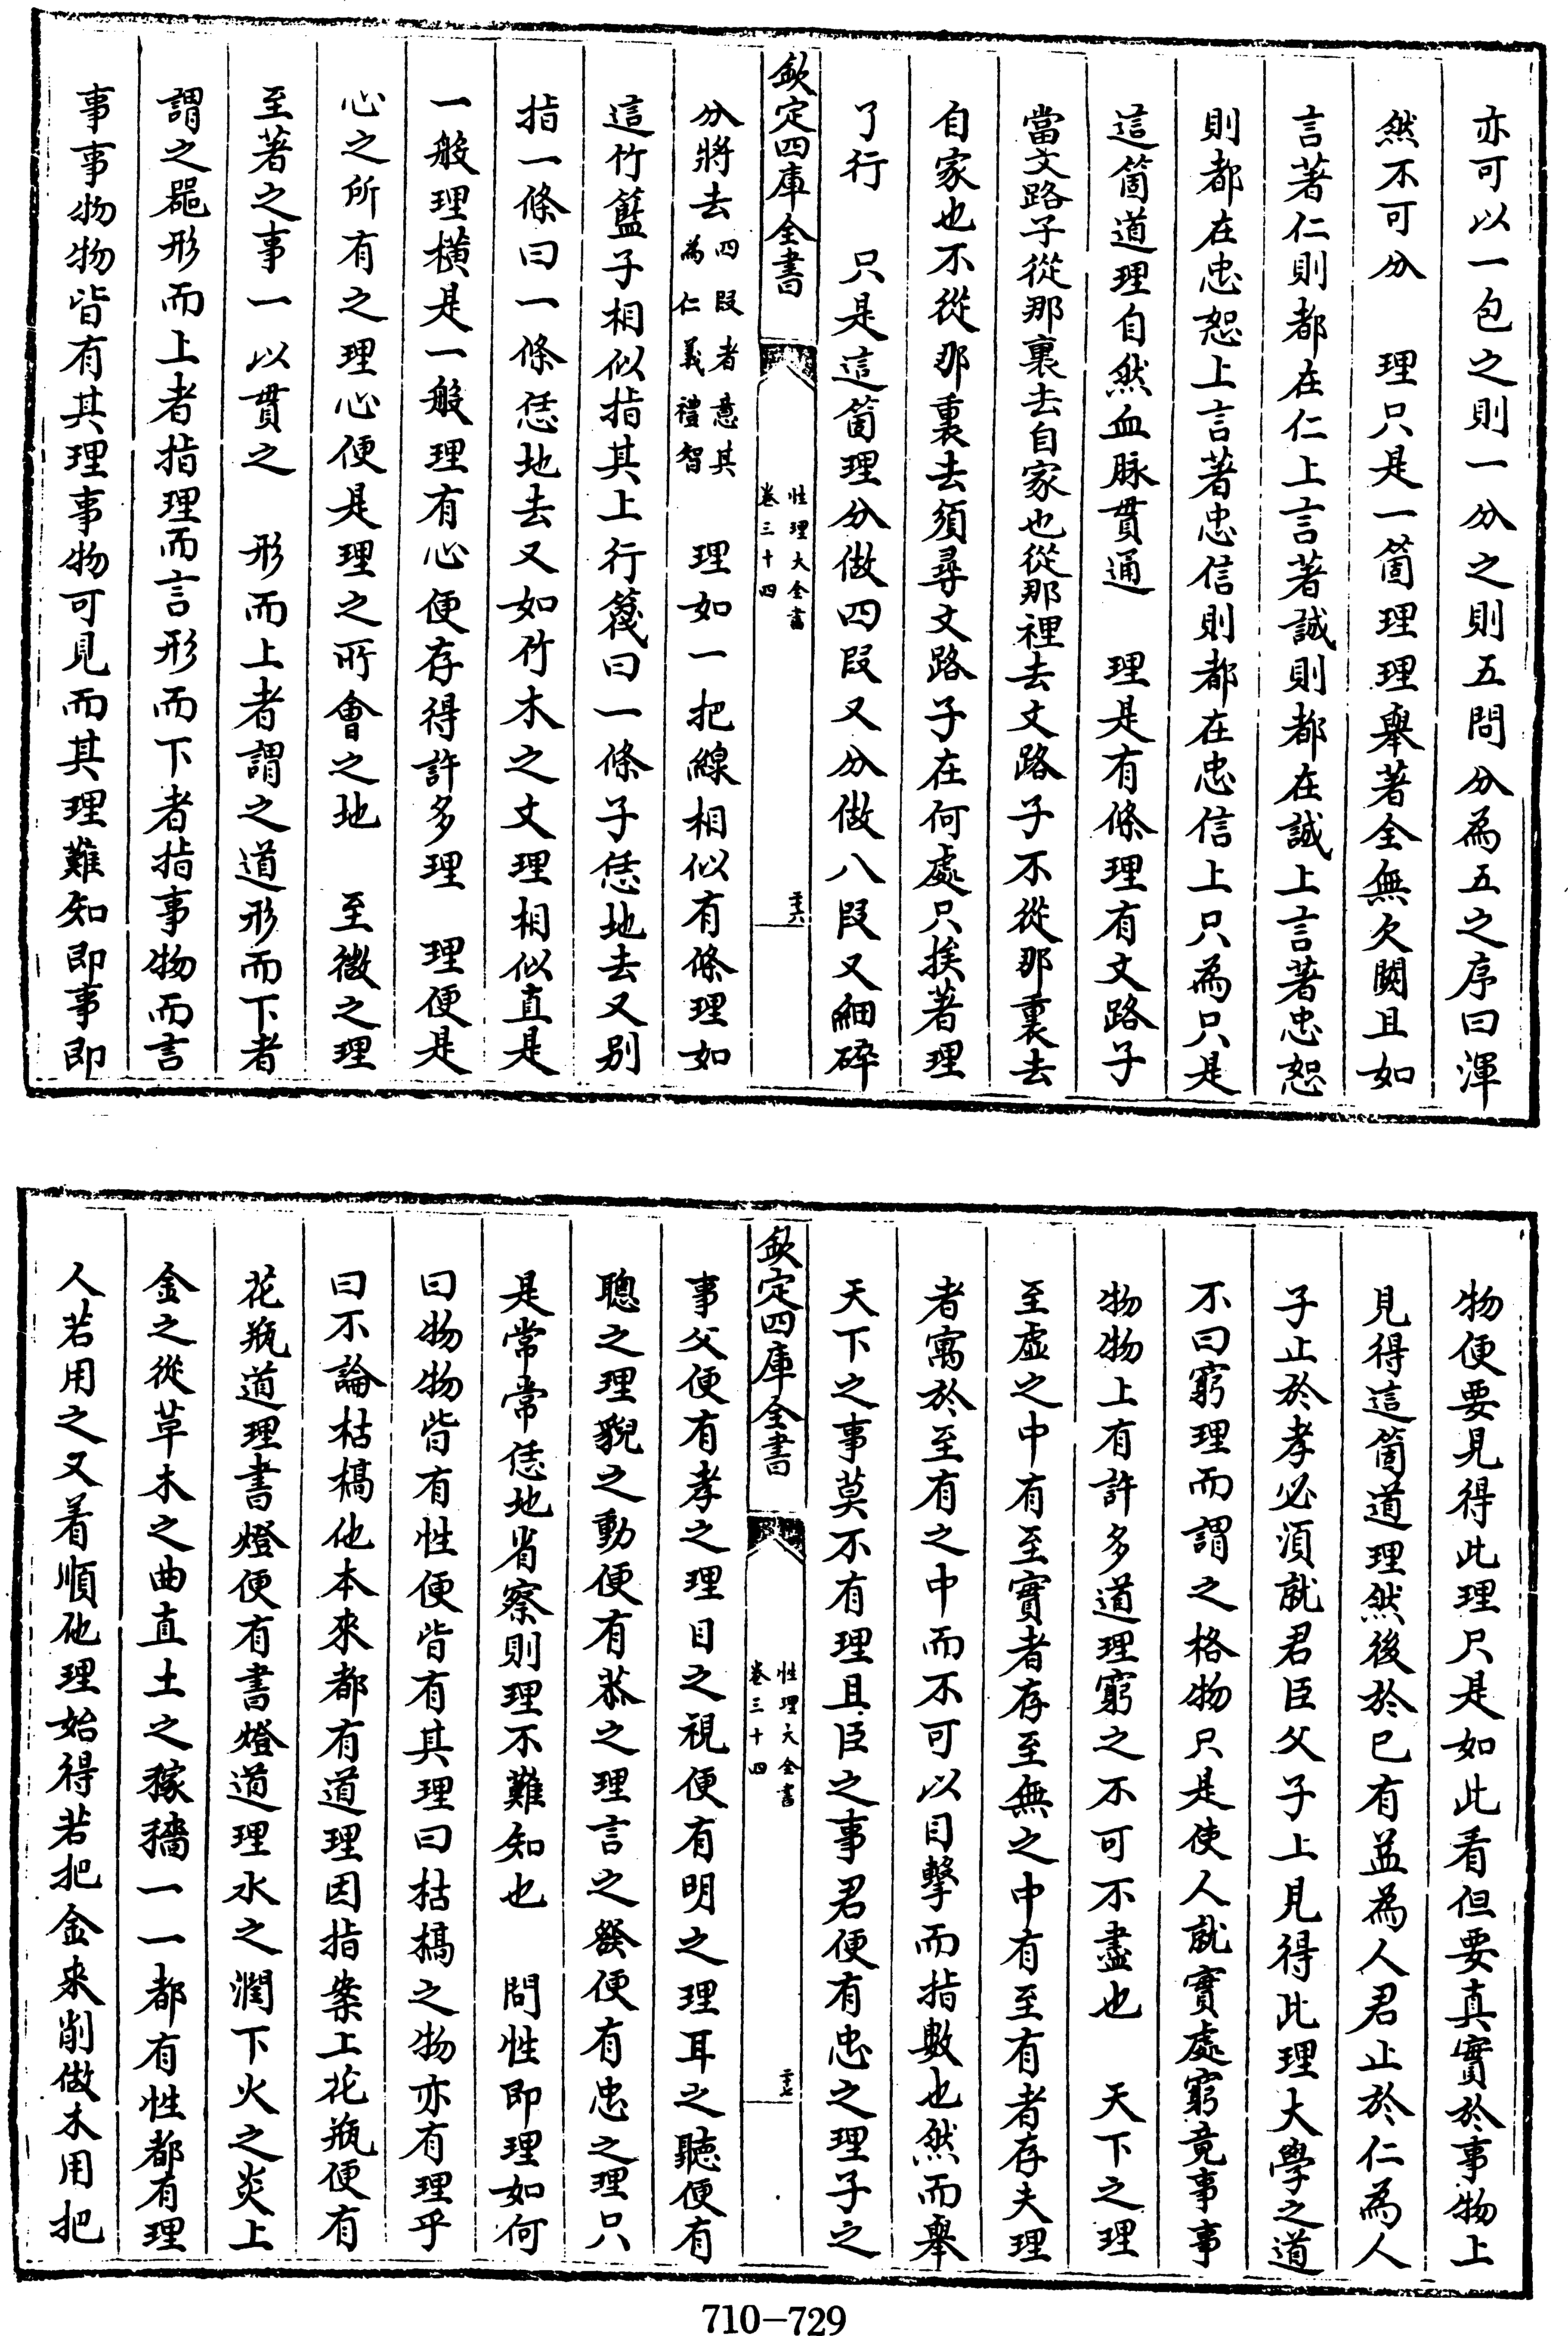 亦可以一包之則一分之則五問分為五之序曰渾
然不可分　理只是一箇理理舉著全無欠闕且如
言著仁則都在仁上言著誠則都在誠上言著忠恕
則都在忠恕上言著忠信則都在忠信上只為只是
這箇道理自然血脉貫通　理是有條理有文路子
當文路子從那裏去自家也從那裡去文路子不從那裏去
自家也不從那裏去須尋文路子在何處只挨著理
了行　只是這箇理分做四段又分做八段又細碎
欽定四庫全書
性理大全書
卷三十四
三十六
分將去四段者意其為仁義禮智　理如一把線相似有條理如
這竹籃子相似指其上行篾曰一條子恁地去又別
指一條曰一條恁地去又如竹木之文理相似直是
一般理橫是一般理有心便存得許多理　理便是
心之所有之理心便是理之所會之地　至微之理
至著之事一以貫之　形而上者謂之道形而下者
謂之器形而上者指理而言形而下者指事物而言
事事物物皆有其理事物可見而其理難知即事即
物便要見得此理只是如此看但要真實於事物上
見得這箇道理然後於己有益為人君止於仁為人
子止於孝必須就君臣父子上見得此理大學之道
不曰窮理而謂之格物只是使人就實處窮竟事事
物物上有許多道理窮之不可不盡也　天下之理
至虛之中有至實者存至無之中有至有者存夫理
者寓於至有之中而不可以目擊而指數也然而舉
天下之事莫不有理且臣之事君便有忠之理子之
欽定四庫全書
性理大全書
卷三十四
三十七
事父便有孝之理目之視便有明之理耳之聽便有
聰之理貌之動便有恭之理言之發便有忠之理只
是常常恁地省察則理不難知也　問性即理如何
曰物物皆有性便皆有其理曰枯槁之物亦有理乎
曰不論枯槁他本來都有道理因指案上花瓶便有
花瓶道理書燈便有書燈道理水之潤下火之炎上
金之從草木之曲直土之稼穡一一都有性都有理
人若用之又着順他理始得若把金來削做木用把
710-729